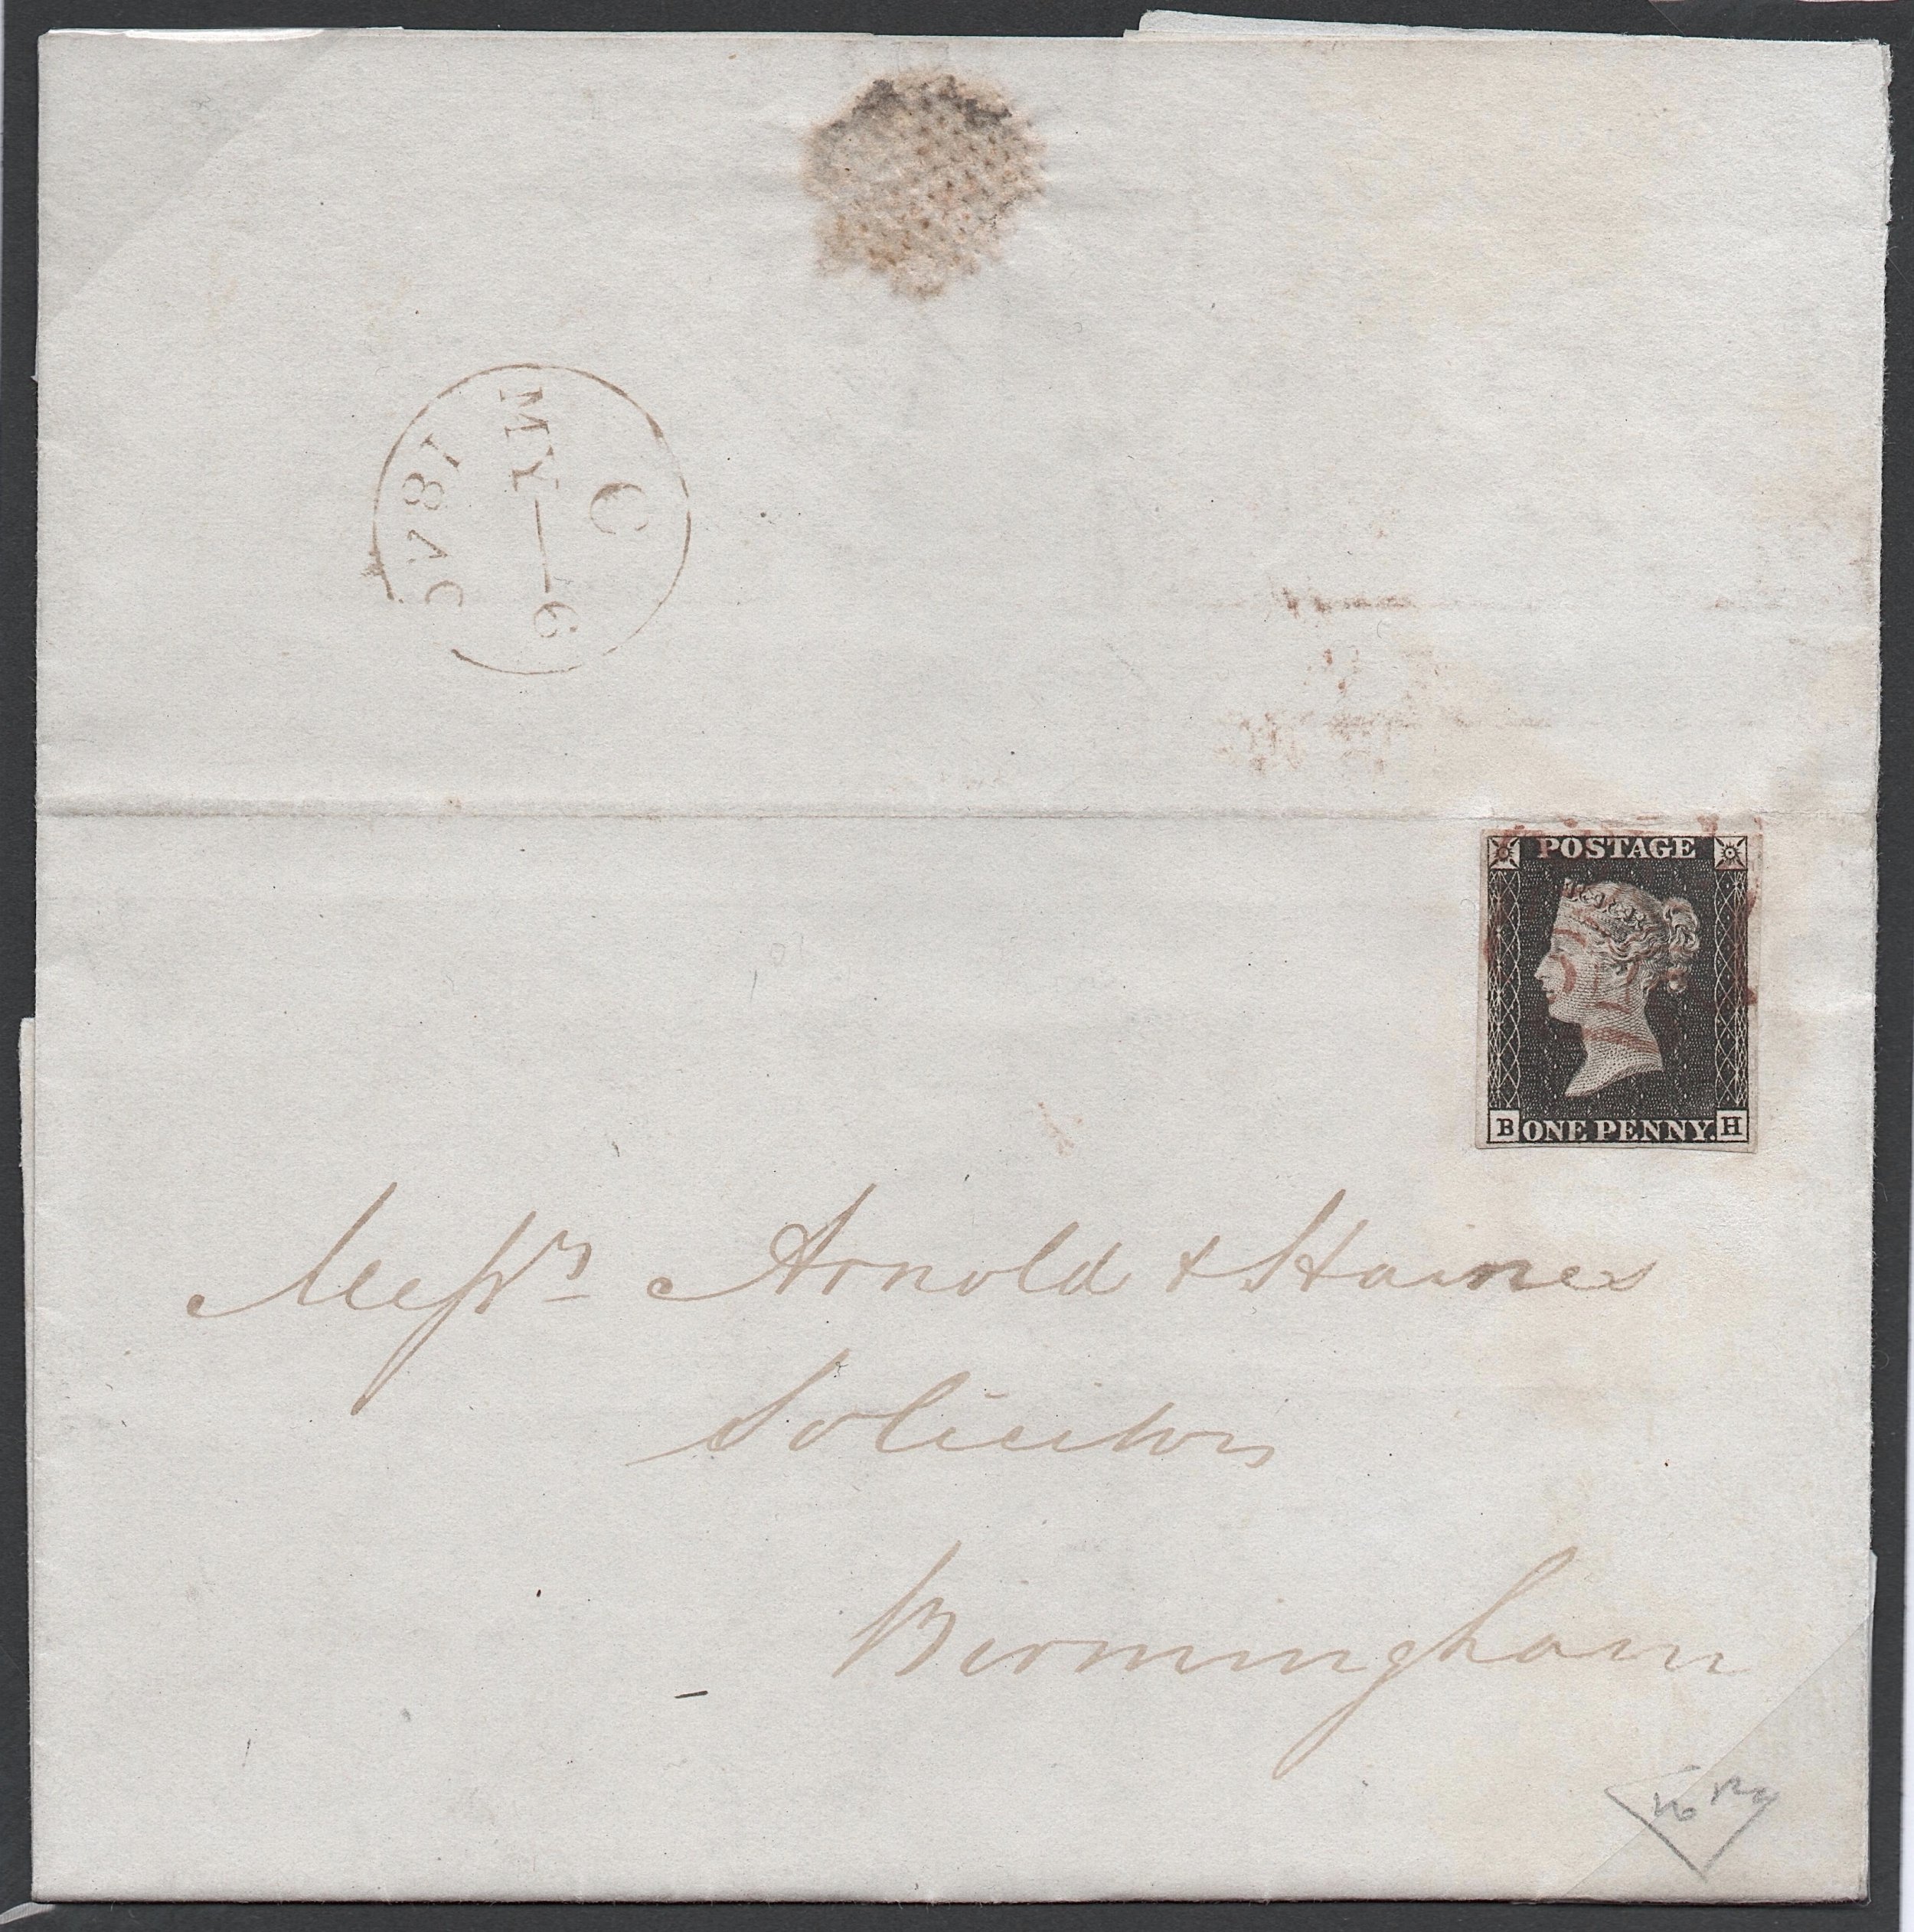 C
MY 6
1840
POSTAGE
B ONE PENNY. H
Messrs Arnold & Haines
Solicitors
Birmingham